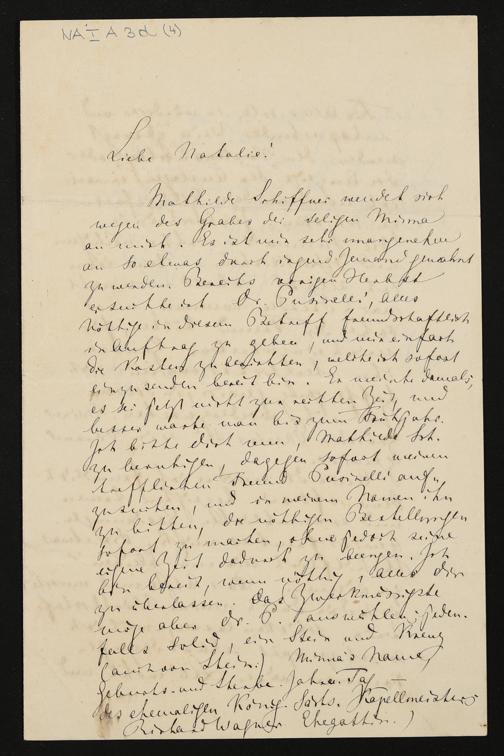 NA I A 3d (4)
Liebe Natalie!
Mathilde Schiffner wendet sich
wegen des Grabes der seligen Minna
an mich. Es ist mir sehr unangenehm
an so etwas durch irgend Jemand gemahnt
zu werden. Bereits vorigen Herbst
ersuchte ich Dr. Pusinelli, alles
Nöthige in diesem Betreff freundschaftlich
in Auftrag zu geben, und mir einfach
die Kosten zu berichten, welche ich sofort
einzusenden bereit bin. Er meinte damals,
es sei jetzt nicht zur rechten Zeit, und
besser warte man bis zum Frühjahr.
Ich bitte dich nun, Mathilde Sch.
zu beruhigen, dagegen sofort meinen
trefflichen Freund Pusinelli aufzu
suchen, und in meinem Namen ihn
zu bitten, die nöthigen Bestellungen
sofort zu machen, ohne jedoch seine
eigene Zeit dadurch zu beengen. Ich
bin bereit, wenn nöthig, alles dir
zu überlassen. Das Zweckmässigste
möge aber Dr. P. auswählen: jeden-
falls solid, ein Stein und Kreuz
(auch von Stein) Minna's Name,
Geburts- und Sterbe-Jahr u. Tag –
des ehemaligen König. Sächs. Kapellmeisters
Richard Wagner Ehegattin.)